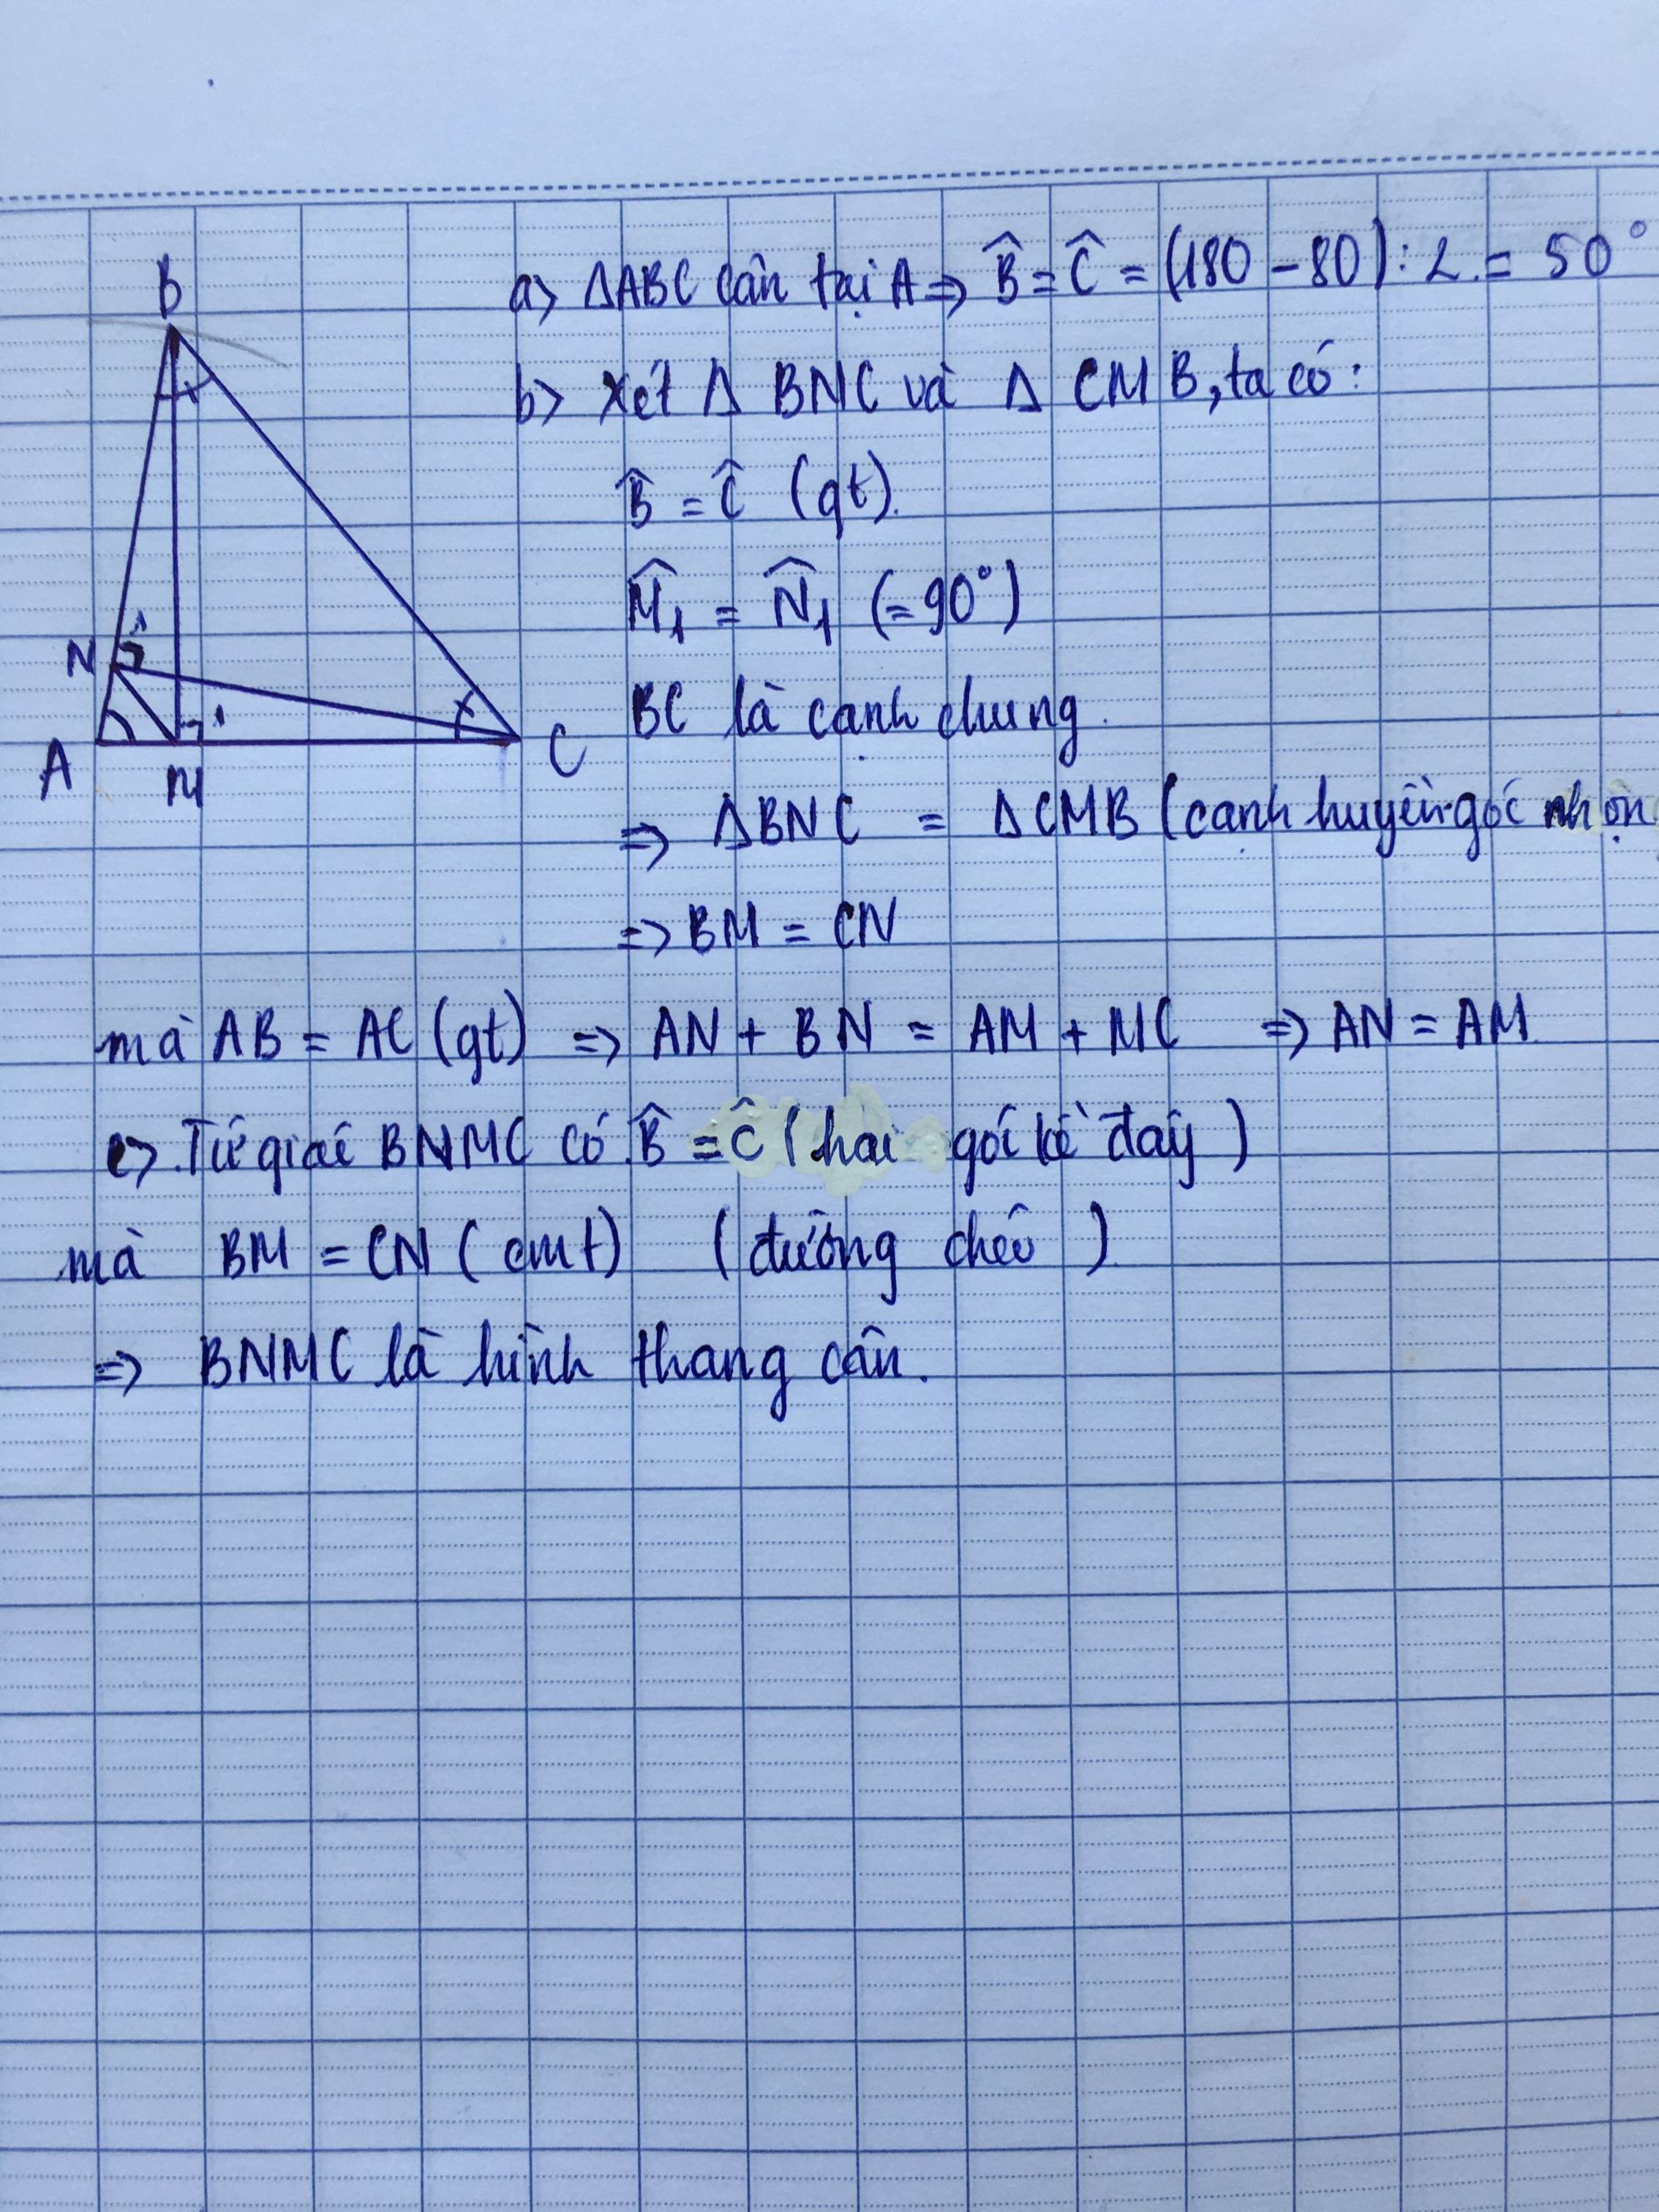 a> ΔABC cân tại A => B̂ = Ĉ = (180 - 80) : 2 = 50°
b> Xét Δ BNC và Δ CMB, ta có:
B̂ = Ĉ (gt).
M̂₁ = N̂₁ (= 90°)
BC là cạnh chung.
=> ΔBNC = ΔCMB (cạnh huyền-góc nhọn
=> BM = CN
mà AB = AC (gt) => AN + BN = AM + MC => AN = AM
c> Tứ giác BNMC có B̂ = Ĉ (hai góc kề đáy)
mà BM = CN (cmt) (đường chéo)
=> BNMC là hình thang cân.
B
N 1
A M 1 C